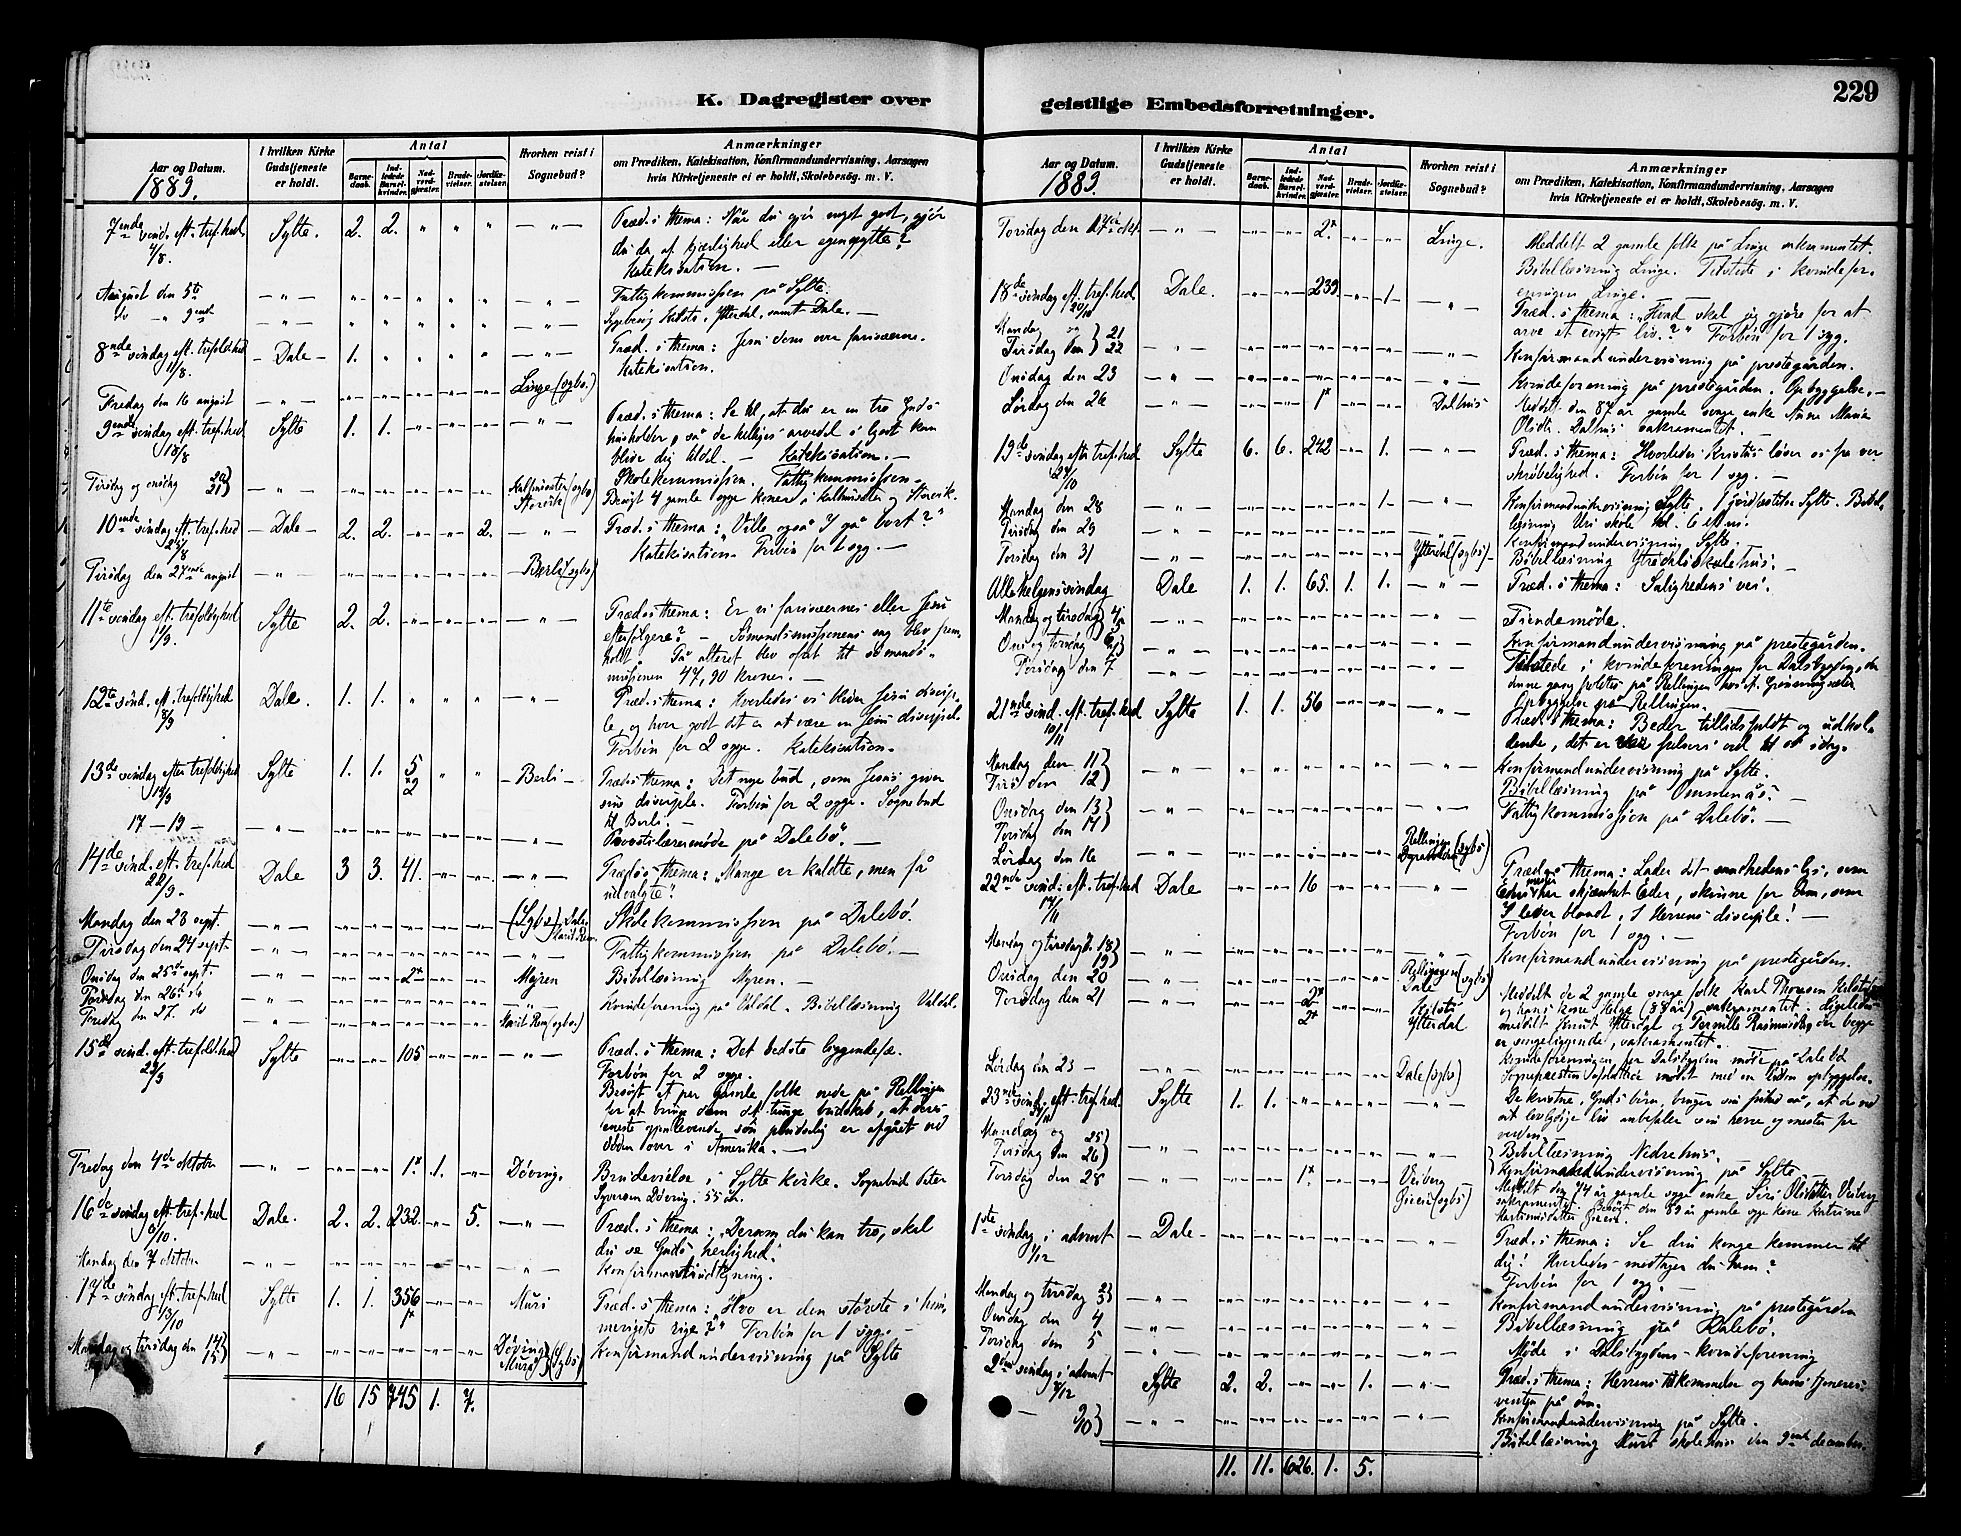 229
K. Dagregister over
geistlige Embedsforretninger.
Aar og Datum.
1889.
I hvilken Kirke Gudstjeneste er holdt.
Antal
Barnedaab.
Indledede Barselkvinder.
Nadvergjæster.
Brudevielser.
Jordfæstelser.
Hvorhen reist i Sognebud?
Anmærkninger
om Prædiken, Katekisation, Konfirmandundervisning, Aarsagen
hvis Kirketjeneste ei er holdt, Skolebesög. m. V.
7ende sönd. eft. tref.hed 4/8. Sylte. 2. 2. " " " — " — Præd.s thema: Når du gjör noget godt, gjör
du da af kjærlighed eller egennytte?
Katekisation. —
August den 5te — " — " " " " " — " — Fattigkommission på Sylte.
do — " 9ende — " — " " " " " — " — Ytterdal, samt Dale. —
8nde söndag eft. trefold.hed 11/8. Dale — 1. " " " — " — Præd.s thema: Jesu dom over fariseerne.
Katekisation.
Fredag den 16 august — " — Linge (sgbs.)
9ende söndag eft. tref.hed 18/8 Sylte 1. 1. — " — Præd.s thema: Se til, at du er en tro Guds
husholder, så de helliges arvedel i lyset kan
blive dig tildel. — Katekisation. —
Tirsdag og onsdag 20 21 — " — Storvik (sgbs) Skolekommission. Fattigkommission.
Besögt 4 gamle syge koner i og Storvik.
10ende söndag eft. tref.hed 25/8 Dale — 2. 2. 2. — " — Præd.s thema: „Ville også I gå bort?"
Katekisation. Forbön for 1 syg. —
Tirsdag den 27nde august — " — Berli (sgbs)
11te söndag eft. trefoldighed 1/9. Sylte 2. 2. — " — Præd.s thema: Er vi fariseernes eller Jesu
efterfölgere? — Sömandsmissionens sag blev frem-
holdt. På alteret blev ofret til sömands-
missionen 47,90 kroner. —
12te sönd. eft. trefoldighed 8/9 Dale. 1. 1. " " " — " — Præd.s thema: Hvorledes vi bliver Jesu discip-
le, og hvor godt det er at være en Jesu discipel.
Forbön for 2 syge. Katekisation.
13de söndag efter trefoldighed 15/9 Sylte 1. 1. 5 2 " " — Berli — Præd.s thema: Det nye bud, som Jesus giver
sine disciple. Forbön for 2 syge. Sognebud
til Berli. —
17 — 19 — — " — Provstilærermöde på Dalebö.
14de sönd. eft. tref.hed 22/9. Dale 3 3. 41. — " — Præd.s thema: „Mange er kaldte, men få
udvalgte."
Mandag den 23 sept. — " — (Sgbs) Dale. Marit Rem. Skolekommission på Dalebö.
Tirsdag den 24 sept. — " — Fattigkommission på Dalebö. —
Onsdag den 25de sept. — " — 2x Myren Bibellæsning Myren. —
Torsdag den 26de do — " — Kvindeforening på Valdal. Bibellæsning Valdal.
Fredag den 27. do — " — Marit Rem (sgbs.)
15de sönd. eft. trefold.hed 29/9 Sylte 105 — " — Præd.s thema: Det bedste liggendefæ.
Forbön for 2 syge.
Besögt et par gamle folk inde på Rellingen
for at bringe dem det tunge budskab, at deres
eneste gjenlevende sön pludselig er afgået ved
döden over i Amerika. —
Fredag den 4de oktober — " — 1x 1. Döving. Brudevielse i Sylte kirke. Sognebud Peter
Syversen Döving. 55 år.
16de söndag eft. tref.hed 6/10. Dale. 2. 2. 232. 5. — " — Præd.s thema: „Dersom du kan tro, skal
du se Guds herlighed."
Mandag den 7 oktober — " — Konfirmantindtegning.
17de söndag eft. tref.hed 13/10 Sylte 1. 1. 356 Muri Præd.s thema: „Hvo er den störste i him-
meriges rige?" Forbön for 1 syg. —
Mandag og tirsdag den 14 15 — " — Döving Muri (Sgbs) Konfirmandundervisning på Sylte
16 15 745 1. 7.
Aar og Datum.
1889.
I hvilken Kirke Gudstjeneste er holdt.
Antal
Barnedaab.
Indledede Barselkvinder.
Nadvergjæster.
Brudevielser.
Jordfæstelser.
Hvorhen reist i Sognebud?
Anmærkninger
om Prædiken, Katekisation, Konfirmandundervisning, Aarsagen
hvis Kirketjeneste ei er holdt, Skolebesög. m. V.
Torsdag den 17de okt. — " — 2x Linge. Meddelt 2 gamle folk på Linge sakramentet.
Bibellæsning Linge. Tilstede i kvindefor-
eningen Linge.
18de söndag eft. tref.hed 20/10 Dale. 239. 1 — " — Præd.s thema: „Hvad skal jeg gjöre for at
arve et evigt liv?" Forbön for 1 syg.
Mandag og Tirsdag den 21 22 — " — Konfirmandundervisning på prestegården.
Onsdag den 23 — " — Kvindeforening på prestegården. Opbyggelse. —
Lördag den 26 — " — 1x Dalhus Meddelt den 87 år gamle svage enke Anne Maria
Olsdtr. Dalhus sakramentet. —
19de söndag efter tref.hed 27/10 Sylte 6. 6. 242 1. — " — Præd.s thema: Hvorledes Kristus löser os fra vor
skröbelighed. Forbön for 1 syg. —
Mandag den 28 — " — 1 — " — Konfirmandundervisning Sylte. 1 jordfæstelse Sylte. Bibel-
læsning Uri skole kl. 6 efterm.
Tirsdag den 29 Konfirmandundervisning Sylte.
Torsdag den 31 — " — Ytterdal (sgbs) Bibellæsning Ytredals skolehus. —
Allehelgenssöndag Dale 1. 1. 65. 1. 1. — " — Præd.s thema: Salighedens vei.
Mandag og tirsdag 4 5 — " — Tiendemöde.
Ons og torsdag 6 7 — " — Konfirmandundervisning på prestegården.
Torsdag den 7 Tilstede i kvindeforeningen for Dalsbygden, der
denne gang holdtes på Rellingen hos
Opbyggelse på Rellingen.
21nde sönd. eft. tref.hed 10/11 Sylte 1. 1. 56 — " — Præd.s thema: Beder tillidsfuldt og udhol-
dende, det er Jesu ord til os idag.
Mandag den 11 Tirsd den 12 — " — Konfirmandundervisning på Sylte.
Bibellæsning på Omenås. —
Onsdag den 13 Torsdag den 14 — " — Fattigkommission på Dalebö. —
Lördag den 16 — " — Rellingen (sgbs)
22nde sönd. eft. tref.hed 17/11 Dale 16 — " — Præd.s thema: Lader det sandhedens lys, som
Eders mester har skjænket Eder, skinne for dem, som
I lever blandt, I Herrens disciple! —
Forbön for 1 syg. —
Mandag og tirsdag d. 18 19 — " — Konfirmandundervisning på prestegården.
Onsdag den 20 — " — Rellingen Dale (sgbs)
Torsdag den 21 — " — 2x 2x Ytterdal Meddelt de 2 gamle svage folk Karl Thomsen
og hans kone Helge (88 år) sakramentet. Ligeledes
meddelt Ytterdal og Pernille Rasmusdtr. der begge
er sengeliggende, sakramentet.
Kvindeforeningen for Dalsbygden möde på Dalebö
Sognepresten afsluttede mödet med en liden opbyggelse.
Lördag den 23 — — " — Dale (sgbs)
23nde sönd. eft. tref.hed. 24/11 Sylte 1. 1. — " — De kristne, Guds börn, bruger sin frihed så, at de ved
sit lovlydige liv anbefaler sin herre og mester for
verden.
Mandag og Tirsdag den 25 26 — " — Bibellæsning Nedrehus.
Konfirmandundervisning på Sylte
Torsdag den 28 — " — 1x Veiberg (sgbs) Meddelt den 74 år gamle syge enke Siri Olsdatter Veiberg
sakramentet. Besögt den 89 år gamle syge kone Katrine
Martinusdatter
1ste söndag i advent 1/12 Dale — " — Præd.s thema: Se din konge kommer til
dig! Hvorledes modtager du ham?
Forbön for 1 syg —
Mandag og tirsdag 2 3 — " — Konfirmandundervisning på prestegården
Onsdag den 4 — " — Bibellæsning på Dalebö.
Torsdag den 5 — " — Möde i Dalsbygdens kvindeforening
2den söndag i advent 8/12 Sylte 2. 2. 1. — " — Præd.s thema: Herrens tilkommelse og hans tjeneres
venten på den.
— 9 10 — " — Konfirmandundervisning på Sylte.
Bibellæsning Muri skolehus den 9ende december.
11. 11. 626. 1. 5.